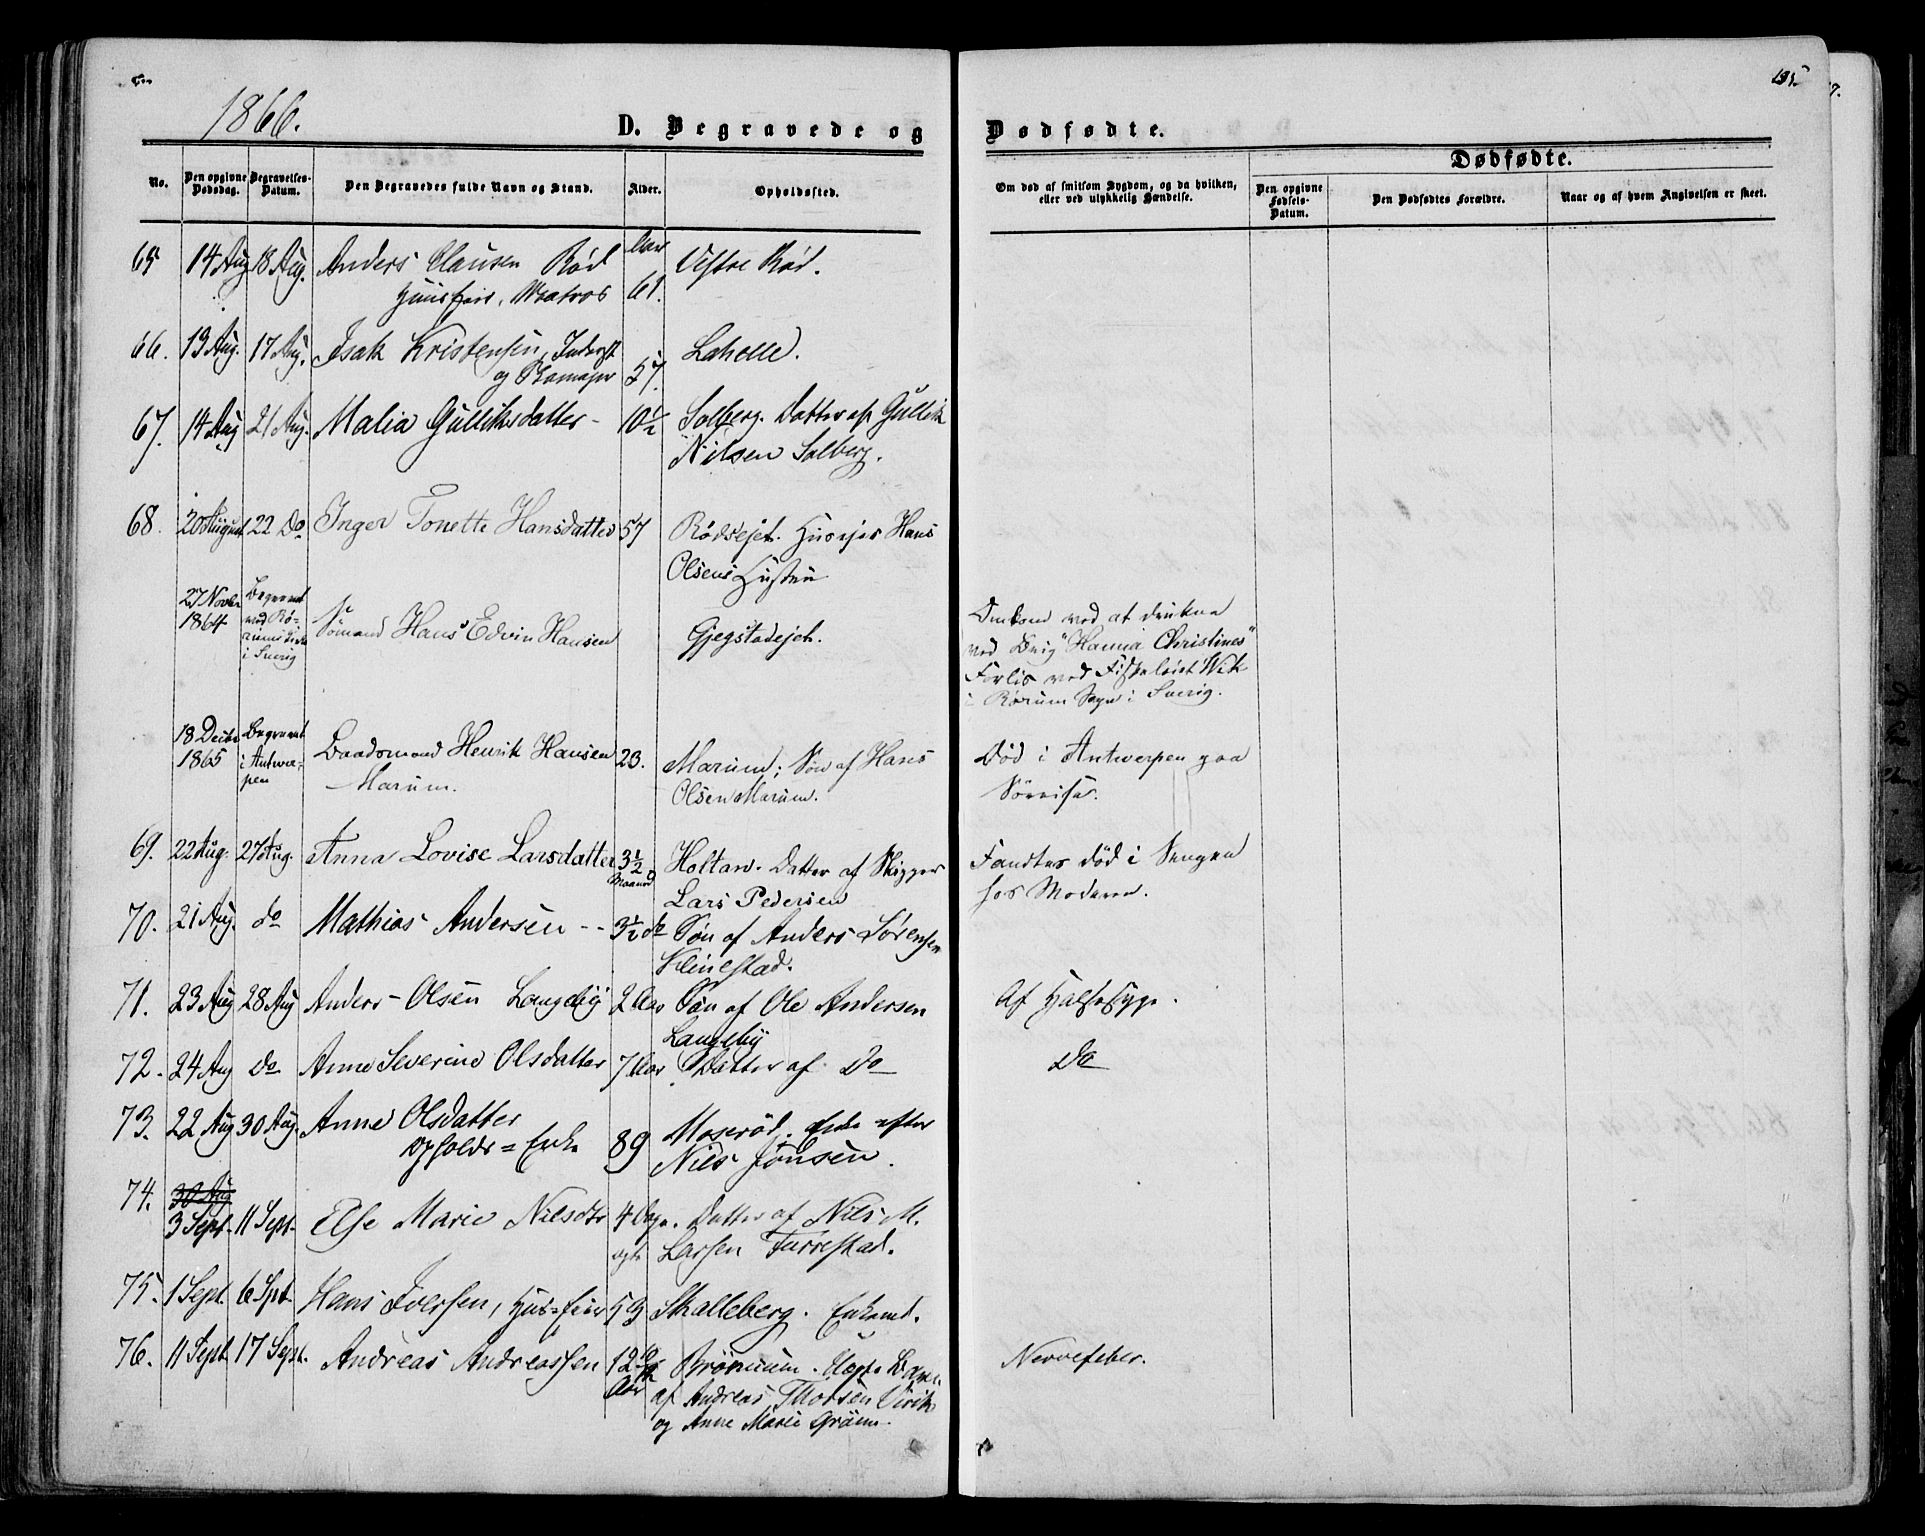 1866.
195.
D. Begravede og Dødfødte.
No.
Den opgivne Dødsdag.
Begravelses-Datum.
Den Begravedes fulde Navn og Stand.
Alder.
Opholdssted.
Om død af smitsom Sygdom, og da hvilken, eller ved ulykkelig Hændelse.
Dødfødte.
Den opgivne Fødsels-Datum.
Den Dødfødtes Forældre.
Naar og af hvem Angivelsen er skeet.
65 14 Aug 18 Aug. Anders Clausen Rød Aar Vestre Rød.
Huusfair, Matros 61.
66. 13 Aug. 17 Aug. Isak Kristensen, Inderst Lahelle.
og 57.
67. 14 Aug 21 Aug. Malia Gulliksdatter - 10½ Solberg. Datter af Gullik
Nilsen Solberg.
68. 20 August 22 Do Inger Tonette Hansdatter 57 Rødsejet. Huusejer Hans
Olsens Hustru
27 Novbr 1864 Begravet ved Rørums Kirke i Sverig Sømand Hans Edvin Hansen Gjegstadejet.
Omkom ved at drukne
ved Brig "Hanna Christines"
Forlis ved Fiskeleiet Wik
i Rørum Sogn i Sverig.
18 Decbr 1865 Begravet i Antwerpen Baadsmand Henrik Hansen 23. Marum; Søn af Hans
Marum. Olsen Marum.
Død i Antwerpen paa
Søreise.
69. 22 Aug. 27 Aug. Anna Lovise Larsdatter 3½ Maaned Holtan. Datter af Skipper
Lars Pedersen
Fandtes død i Sengen
hos Moderen.
70. 21 Aug. do Mathias Andersen - - 3½ do Søn af Anders Sørensen
Klinestad.
71. 23 Aug 28 Aug Anders Olsen Langeby 2 Aar Søn af Ole Andersen
Langeby
Af Halssyge.
72. 24 Aug do Anne Severine Olsdatter 7 Aar Datter af Do
Do
73. 22 Aug 30 Aug. Anne Olsdatter
Opholds=Enke 89 Moserød. Enke efter
Nils Jonsen.
74. 30 Aug
3 Sept. 11 Sept. Else Marie Nilsdtr 4 Datter af Nils M.
Larsen Furrestad.
75. 1 Sept. 6 Spt. Hans Iversen, Hus=feier 59 Skalleberg. Enkemd.
76. 11 Sept. 17 Sept. Andreas Andreassen 12 Aar Brønum. Uægte Barn
af Andreas Thorsen Virik
og Anne Marie
Nervefeber.